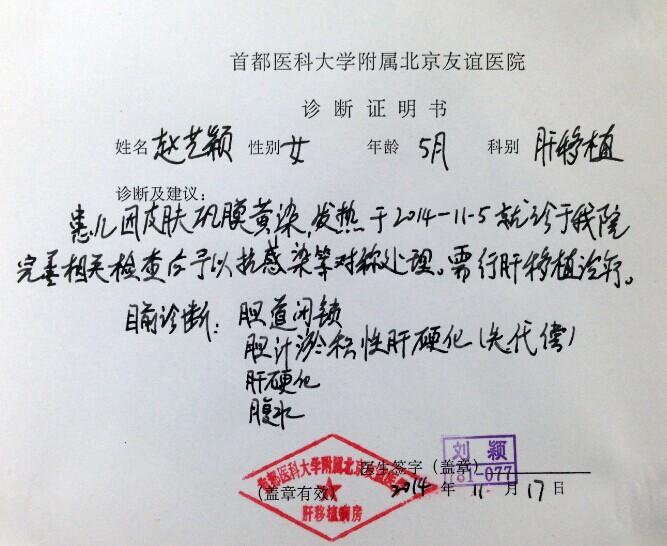 首都医科大学附属北京友谊医院
诊断证明书
姓名 赵艺颖 性别 女 年龄 5月 科别 肝移植
诊断及建议:
患儿因皮肤巩膜黄染,发热于2014-11-5就诊于我院
完善相关检查后予以抗感染等对称处理。需行肝移植治疗。
目前诊断: 胆道闭锁
胆汁淤积性肝硬化(失代偿)
肝硬化
腹水
医生签字(盖章) 刘颖
781-077
(盖章有效) 2014年11月17日
首都医科大学附属北京友谊医院
肝移植病房